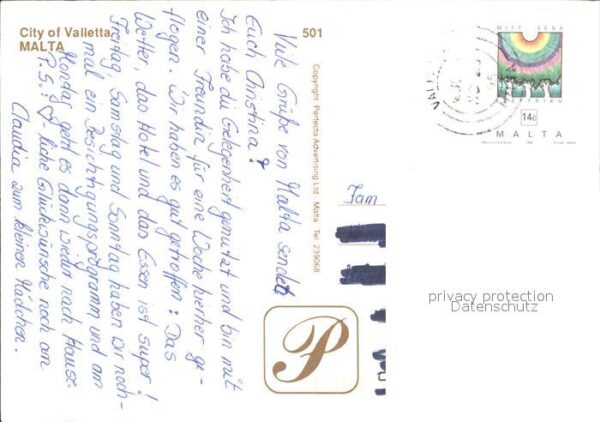 City of Valletta
MALTA
501
Viele Grüße von Malta sendet
Euch Christina!
Ich habe die Gelegenheit genutzt und bin mit
einer Freundin für eine Woche hierher ge-
flogen. Wir haben es gut getroffen: Das
Wetter, das Hotel und das Essen ist super!
Freitag, Samstag und Sonntag haben wir noch-
mal ein Besichtigungsprogramm und am
Montag geht es dann wieder nach Hause.
P.S.: liche Glückwünsche noch an
Claudia zum kleinen Mädchen.
Copyright Perfecta Advertising Ltd. Malta. Tel: 239068
P
Fam
MALTA
14c
privacy protection
Datenschutz